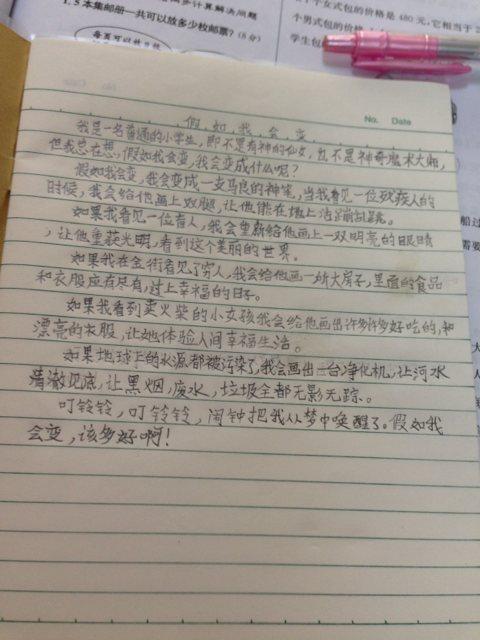 1.5本集邮册一共可以放多少枚邮票?(8分)
个女式包的价格是480元,它相当于
个男式包的价格
学生包
No. Date
假如我会变
我是一名普通的小学生,即不是有神的仙女,也不是神奇魔术大师,
但我总在想,假如我会变,我会变成什么呢?
假如我会变,我会变成一支马良的神笔,当我看见一位残疾人的
时候,我会给他画上双腿,让他能在地上活蹦乱跳。
如果我看见一位盲人,我会重新给他画上一双明亮的眼睛
,让他重获光明,看到这个美丽的世界。
如果我在街看见穷人,我会给他画一所大房子,里面的食品
和衣服应有尽有,过上幸福的日子。
如果我看到卖火柴的小女孩我会给他画出许多许多好吃的,和
漂亮的衣服,让她体验人间幸福生活。
如果地球上的水源都被污染了,我会画出一台净化机,让河水
清澈见底,让黑烟,废水,垃圾全都无影无踪。
叮铃铃,叮铃铃,闹钟把我从梦中唤醒了。假如我
会变,该多好啊!